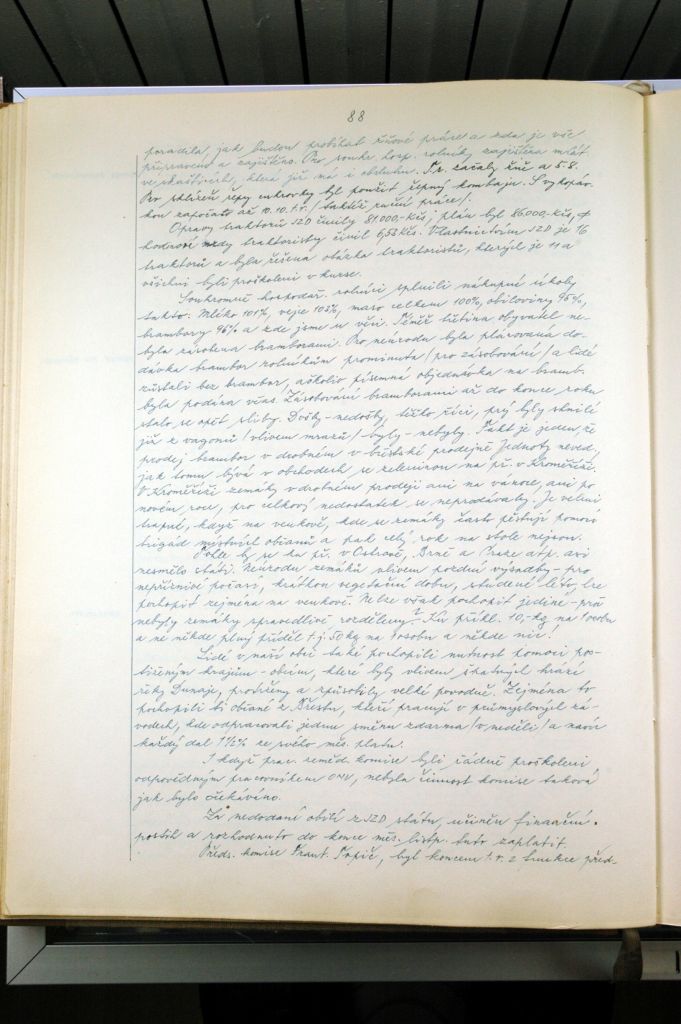 88
poradila, jak budou probíhat žňové práce a zda je vše
připraveno a zajištěno. Pro soukr. hosp. rolníky zajištěna mlát.
ve skaštících, která již má i obsluhu. Tr. začaly žně a 5.8.
Pro sklizeň řepy cukrovky byl použit řepný kombajn. S vykopáv.
kou započato až 10.10. t.r. /taktéž ruční práce/.
Opravy traktorů JZD činily 81000,-Kčs, plán byl 86000,-Kčs, ϕ
hodnové mzdy traktoristy činil 6,53 Kčs. Vlastnictvím JZD je 16
traktorů a byla řešena otázka traktoristů, kterých je 11 a
všichni byli proškoleni v kurse.
Soukromě hospodař. rolníci splnili nákupní úkoly
takto: Mléko 101%, vejce 102%, maso celkem 100%, obiloviny 95%,
brambory 96% a zde jsme u věci. Téměř většina obyvatel ne-
byla zásobena bramborami. Pro neúrodu byla plánovaná do-
dávka brambor rolníkům prominuta /pro zásobování/ a lidé
zůstali bez brambor, ačkoliv písemná objednávka na bramb.
byla podána včas. Zásobování bramborami až do konce roku
stálo se opět sliby. Došly-nedošly, těžko říci, prý byly shnilé
již z vagonů /vlivem mrazů/ -byly-nebyly. Fakt je jeden, že
prodej brambor v drobném v břestské prodejně Jednoty neved,
jak tomu bývá v obchodech se zeleninou na př. v Kroměříži.
V Kroměříži zemáky v drobném prodeji ani na vánoce, ani po
novém roce, pro celkový nedostatek se neprodávaly. Je velmi
trapné, když na venkově, kde se zemáky často pěstují pomocí
brigád místních občanů a pak celý rok na stole nejsou.
Tohle by se na př. v Ostravě, Brně a Praze atp. asi
nesmělo státi. Neúrodu zemáků vlivem pozdní výsadby-pro
nepříznivé počasí, krátkou vegetační dobu, studené léto, lze
pochopit zejména na venkově. Nelze však pochopit jedině-proč
nebyly zemáky spravedlivě rozděleny? Ku příkl. 10,-kg na 1 osobu
a ne někde plný příděl t.j. 50 kg na 1 osobu a někde nic!
Lidé v naší obci také pochopili nutnost pomoci pos-
tiženým krajům-obcím, které byly vlivem špatných hrází
řeky Dunaje, protrženy a způsobily velké povodně. Zejména to
pochopili ti občané z Břestu, kteří pracují v průmyslových zá-
vodech, kde odpracovali jednu směnu zdarma /v neděli/ a navíc
každý dal 1 1/2% ze svého měs. platu.
I když prac. zeměd. komise byli řádně proškoleni
odpovědným pracovníkem ONV, nebyla činnost komise taková
jak bylo očekáváno.
Za nedodání obilí z JZD státu, učiněn finanční
postih a rozhodnuto do konce měs. listp. tuto zaplatit.
Předs. komise Frant. Topič, byl koncem t.r. z funkce před.